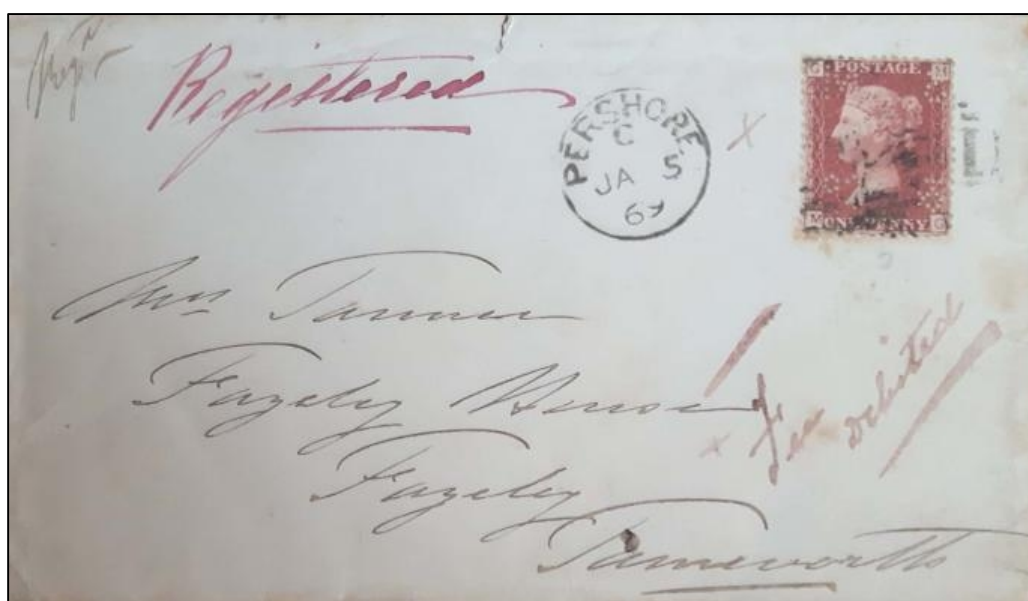 Regd
Registered
PERSHORE
C
JA 5
69
G POSTAGE M
M ONE PENNY G
Mrs Tanner
Fazeley House
Fazeley
Tamworth
Fee
debited